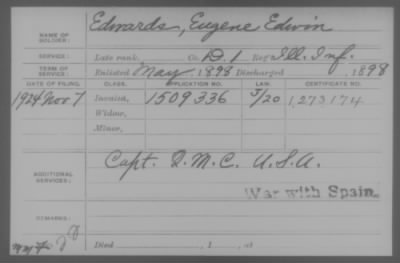 NAME OF SOLDIER: Edwards, Eugene Edwin
SERVICE: Late rank, Co. D. 1 Reg't Ill. Inf.
TERM OF SERVICE: Enlisted May, 1898 Discharged , 1898
DATE OF FILING. CLASS. APPLICATION NO. LAW. CERTIFICATE NO.
1924 Nov. 7 Invalid, 1509336 3/20 1273174
Widow,
Minor,
ADDITIONAL SERVICES: Capt. Q.M.C. U.S.A.
War with Spain.
REMARKS:
Died , 1 , at